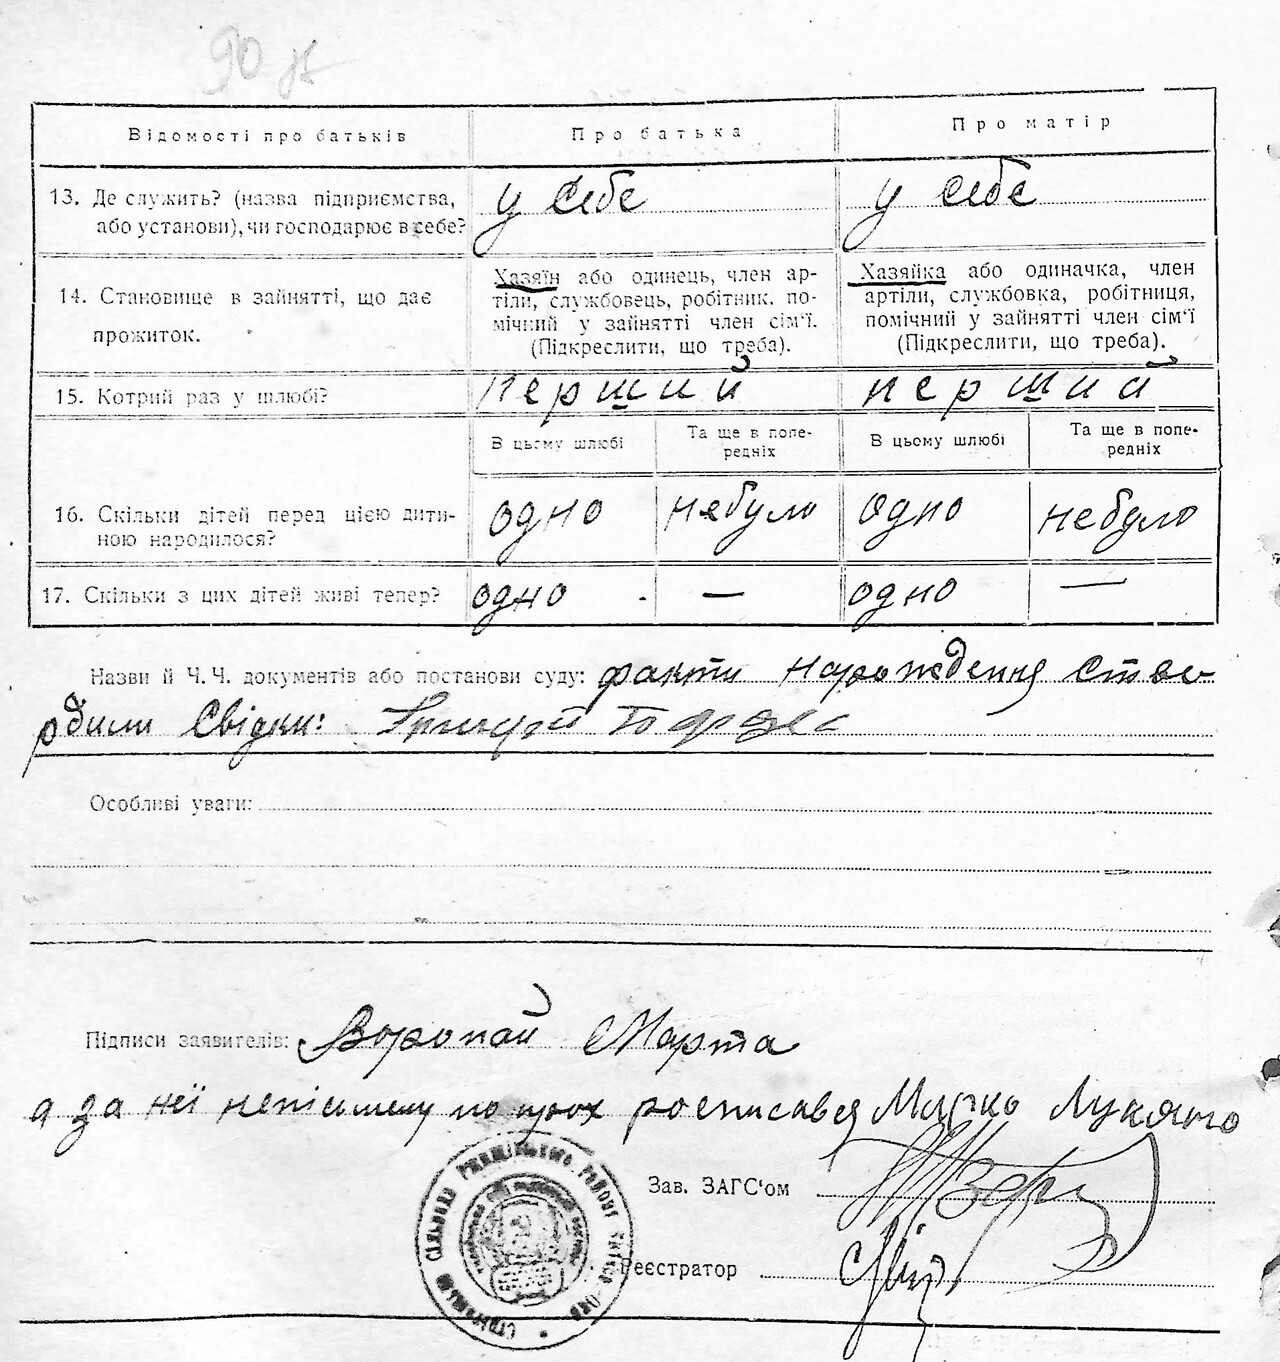 90
Відомості про батьків
Про батька
Про матір
13. Де служить? (назва підприємства,
або установи), чи господарює в себе?
у себе
у себе
14. Становище в зайнятті, що дає
прожиток.
Хазяїн або одинець, член ар-
тіли, службовець, робітник. по-
мічний у зайнятті член сім'ї.
(Підкреслити, що треба).
Хазяйка або одиначка, член
артіли, службовка, робітниця,
помічний у зайнятті член сім'ї
(Підкреслити, що треба).
15. Котрий раз у шлюбі?
перший
перший
В цьому шлюбі
Та ще в попе-
редніх
В цьому шлюбі
Та ще в попе-
редніх
16. Скільки дітей перед цією дити-
ною народилося?
одно
небуло
одно
небуло
17. Скільки з цих дітей живі тепер?
одно
—
одно
—
Назви й Ч.Ч. документів або постанови суду: факти народження ство-
рдили Свідки:
Особливі уваги:
Підписи заявителів: Воропай Марта
а за неї неписьмену по прох росписався Марко Лукяно
Зав. ЗАГС'ом
Реєстратор